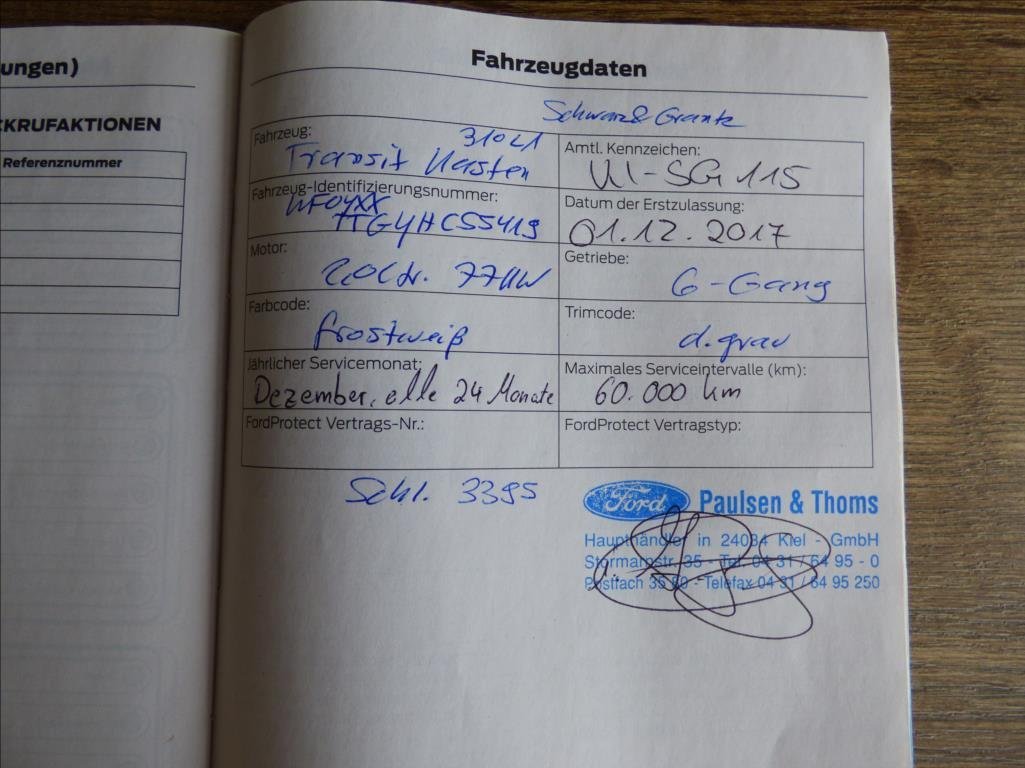 ungen)
CKRUFAKTIONEN
Referenznummer
Fahrzeugdaten
Schwarz & Grantz
Fahrzeug:
310 L1
Transit Kasten
Amtl. Kennzeichen:
WI-SG 115
Fahrzeug-Identifizierungsnummer:
WF0YXX
TTGYHC55419
Datum der Erstzulassung:
01.12.2017
Motor:
2.0 Ltr. 77KW
Getriebe:
6-Gang
Farbcode:
frostweiß
Trimcode:
d.grau
Jährlicher Servicemonat:
Dezember, alle 24 Monate
Maximales Serviceintervalle (km):
60.000 km
FordProtect Vertrags-Nr.:
FordProtect Vertragstyp:
Schl. 3395
Ford Paulsen & Thoms
Haupthändler in 24034 Kiel - GmbH
Stormarnstr. 35 - Tel. 04 31 / 64 95 - 0
Postfach 35 80 - Telefax 04 31 / 64 95 250